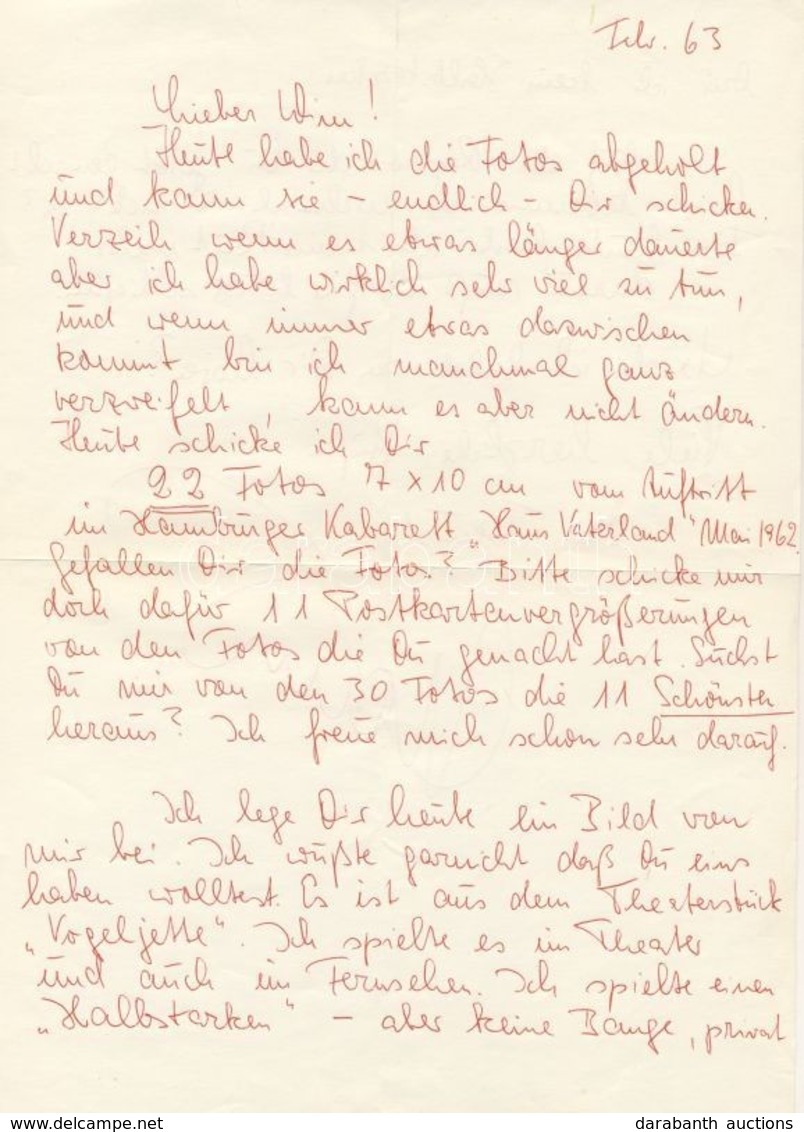 Febr. 63
Lieber Wim!
Heute habe ich die Fotos abgeholt
und kann sie – endlich – Dir schicken.
Verzeih wenn es etwas länger dauerte
aber ich habe wirklich sehr viel zu tun,
und wenn immer etwas dazwischen
kommt bin ich manchmal ganz
verzweifelt, kann es aber nicht ändern.
Heute schicke ich Dir
22 Fotos 7 x 10 cm vom Auftritt
im Hamburger Kabarett „Haus Vaterland" Mai 1962.
Gefallen Dir die Fotos? Bitte schicke mir
doch dafür 11 Postkartenvergrößerungen
von den Fotos die Du gemacht hast. Suchst
Du mir von den 30 Fotos die 11 Schönsten
heraus? Ich freue mich schon sehr darauf.
Ich lege Dir heute ein Bild von
mir bei. Ich wußte garnicht daß Du eins
haben wolltest. Es ist aus dem Theaterstück
„Vogeljette". Ich spielte es im Theater
und auch im Fernsehen. Ich spielte einen
„Halbstarken" – aber keine Bange, privat
www.delcampe.net
darabanth auctions